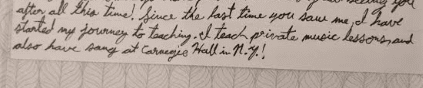 after all this time! Since the last time you saw me, I have
started my journey to teaching. I teach private music lessons, and
also have sang at Carnegie Hall in N.Y.!